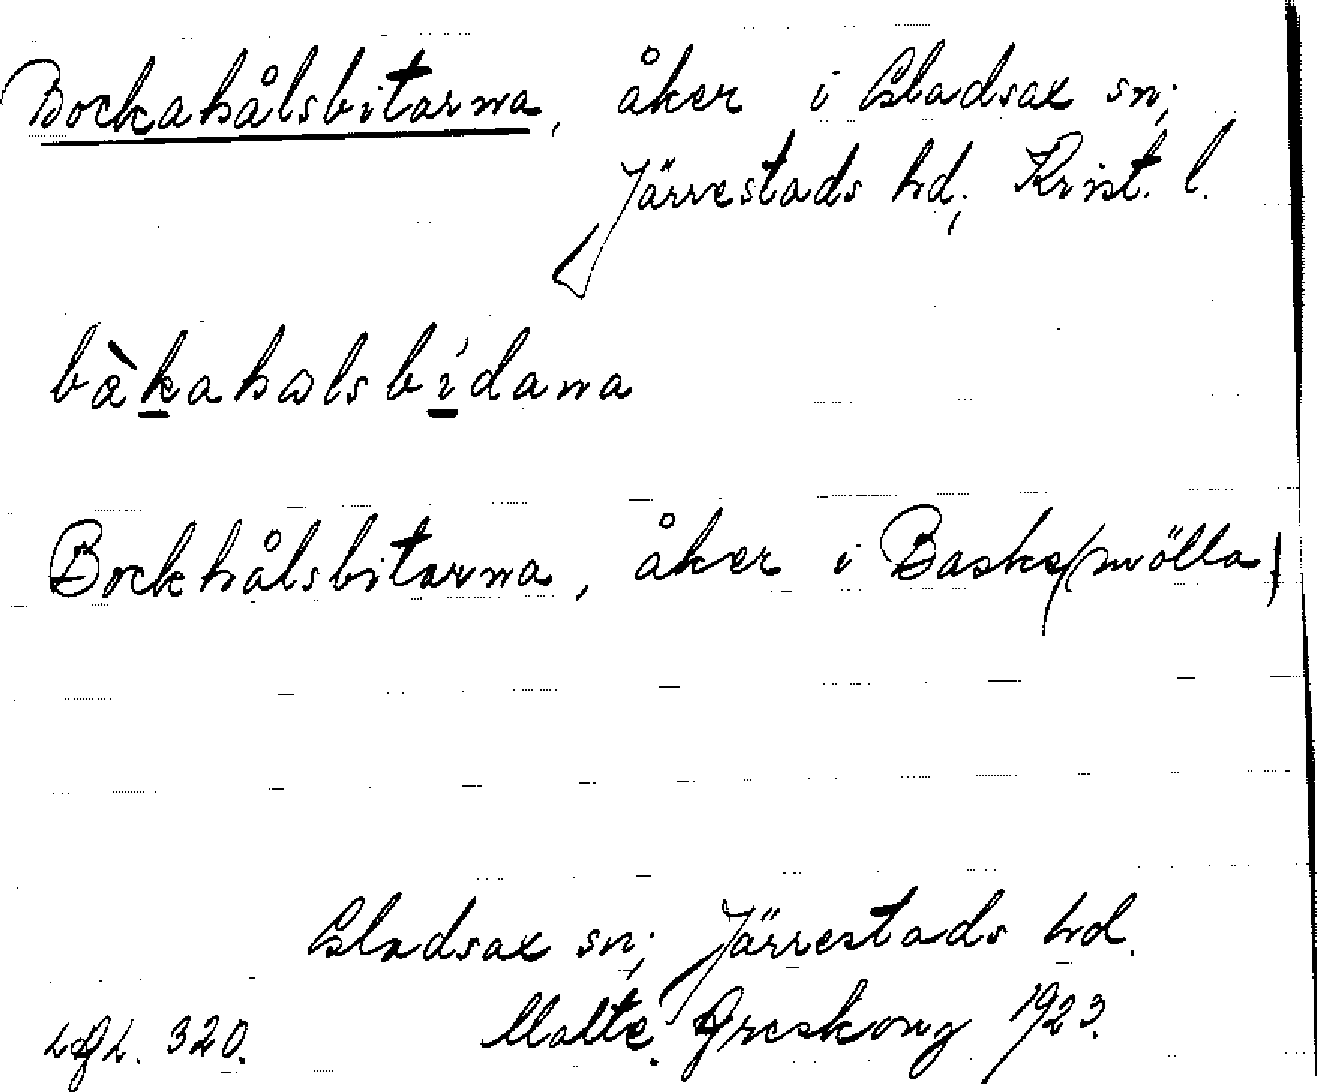 Bockahålsbitarna, åker i Gladsax sn;
Järrestads hd; Krist. l.
bàkahalsbidana
Bockhålsbitarna, åker i Baske(mölla)
Gladsax sn; Järrestads hd.
LAL. 320. Malte 1923.